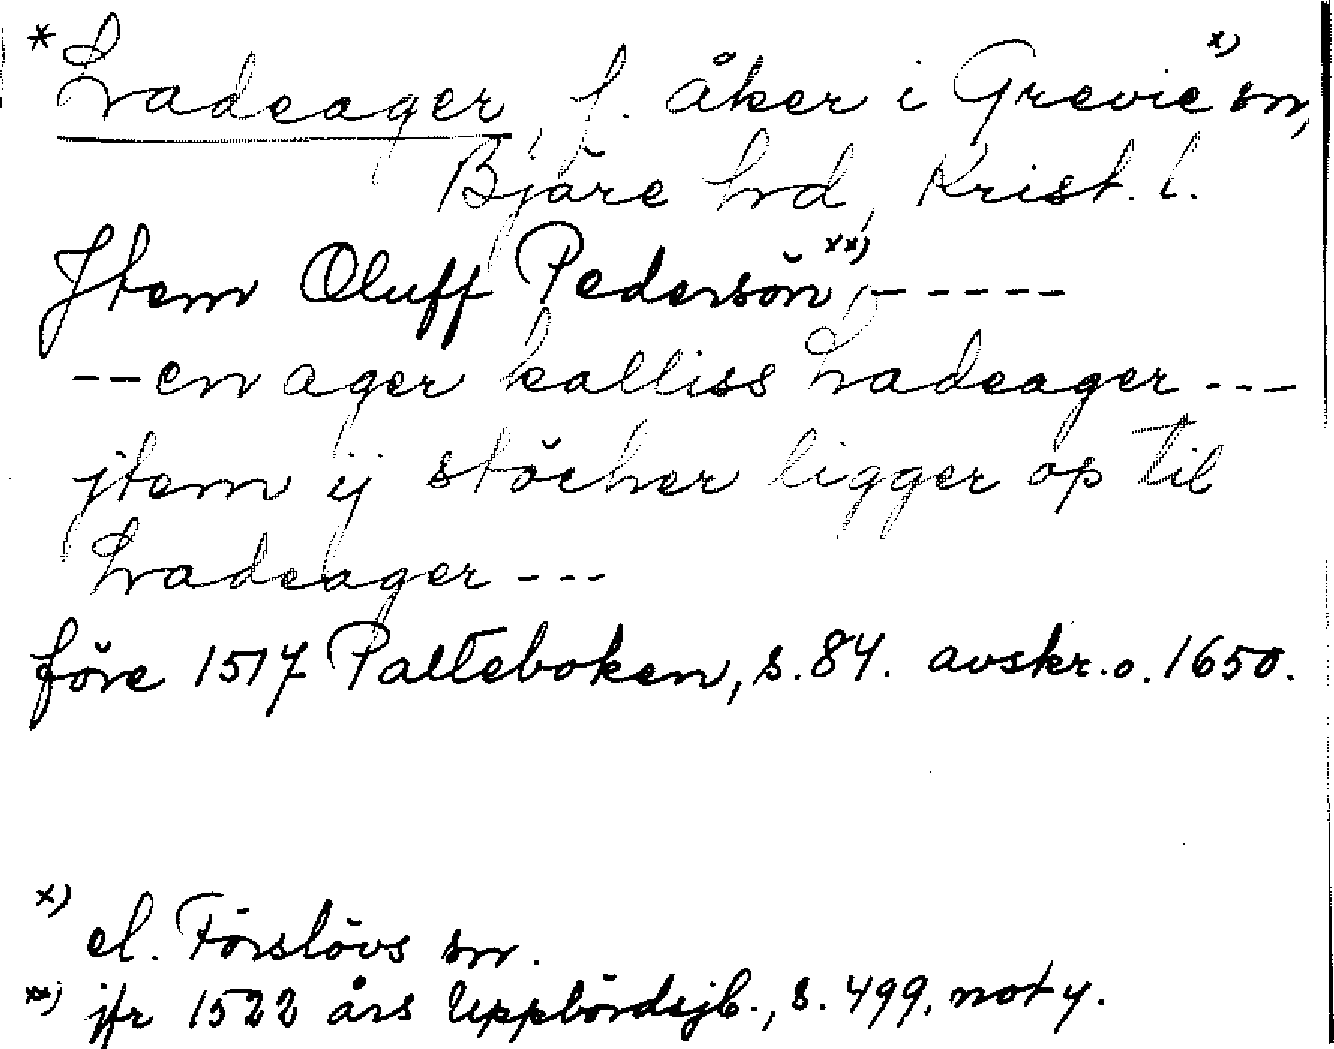 * Ladeager, f. åker i Grevie x) sn,
Bjäre hd, Krist. l.
Jtem Oluff Pedersön xx), -----
-- en ager kalliss Ladeager ---
jtem ij stöcker ligger op til
Ladeager ---
före 1517 Palteboken, s. 84. avskr. o. 1650.
x) el. Förslövs sn.
xx) jfr 1522 års Uppbördsjb., s. 499, not y.